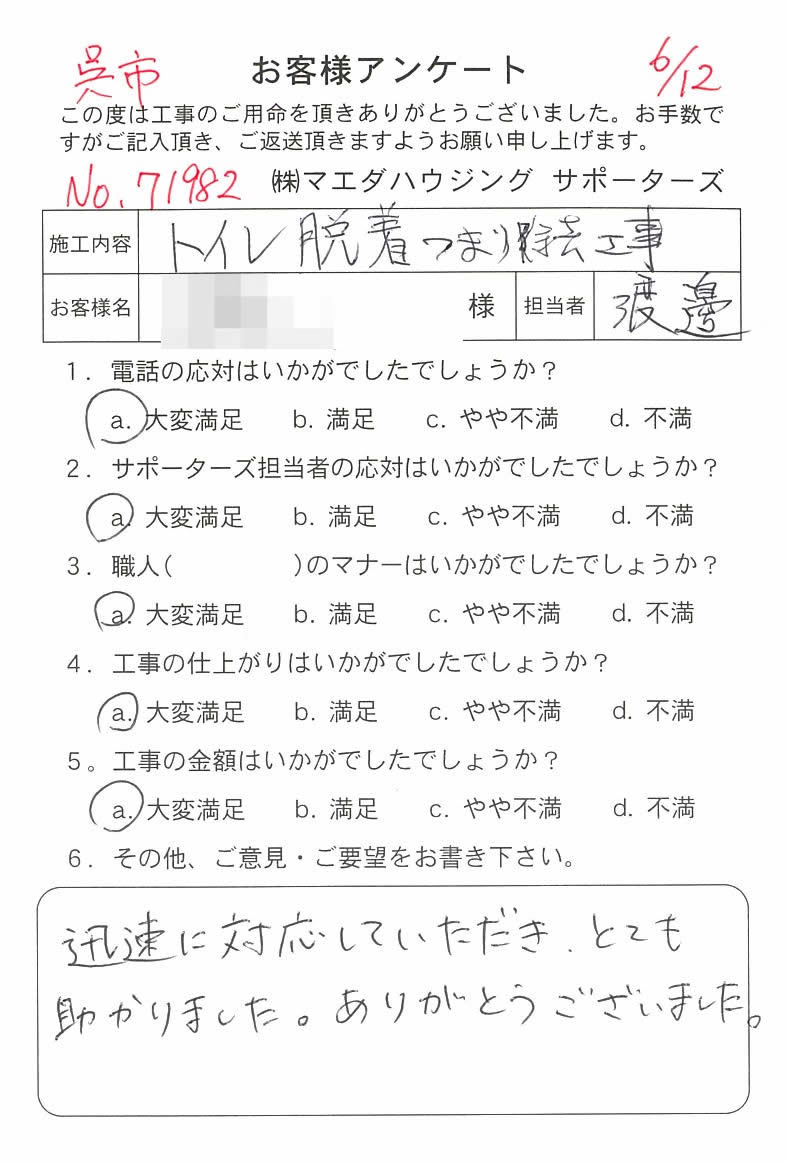 呉市 お客様アンケート 6/12
この度は工事のご用命を頂きありがとうございました。お手数で
すがご記入頂き、ご返送頂きますようお願い申し上げます。
No.71982 ㈱マエダハウジング サポーターズ
施工内容 トイレ脱着つまり除去工事
お客様名 様 担当者 渡邊
1. 電話の応対はいかがでしたでしょうか？
a. 大変満足 b. 満足 c. やや不満 d. 不満
2. サポーターズ担当者の応対はいかがでしたでしょうか？
a. 大変満足 b. 満足 c. やや不満 d. 不満
3. 職人( )のマナーはいかがでしたでしょうか？
a. 大変満足 b. 満足 c. やや不満 d. 不満
4. 工事の仕上がりはいかがでしたでしょうか？
a. 大変満足 b. 満足 c. やや不満 d. 不満
5。工事の金額はいかがでしたでしょうか？
a. 大変満足 b. 満足 c. やや不満 d. 不満
6. その他、ご意見・ご要望をお書き下さい。
迅速に対応していただき、とても
助かりました。ありがとうございました。